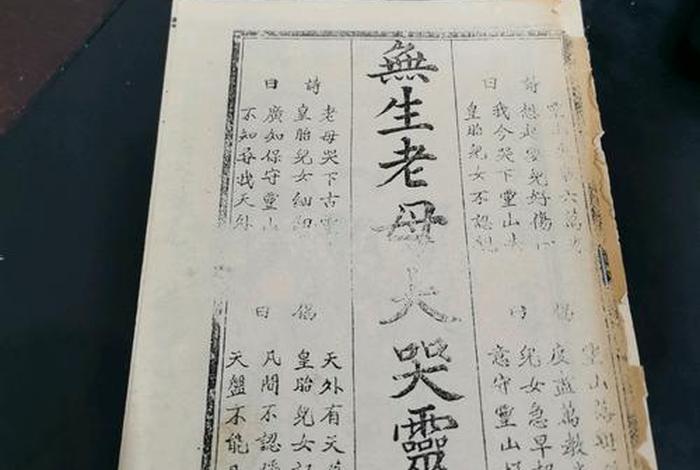 詩曰
六萬
想起嬰兒好傷
我今哭下靈山
皇胎兒女不認
偈曰
靈山落
度盡萬教
兒女急早
意守靈山
無生老母大哭靈
詩曰
老母哭下古
皇胎兒女細
廣知保守靈山
不知尋我天外
偈曰
天外有天
皇胎兒女
凡間不認
天盤不能